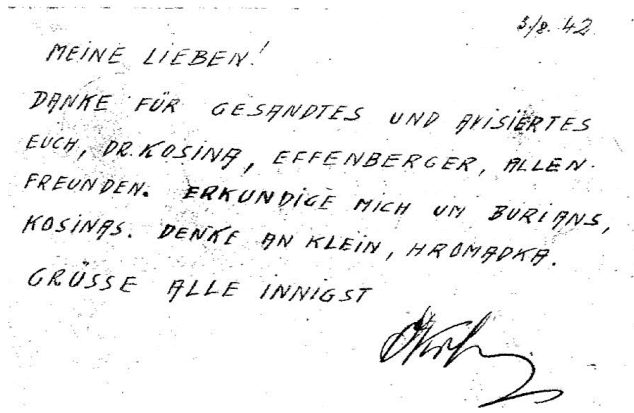 3/8. 42
MEINE LIEBEN!
DANKE FÜR GESANDTES UND AVISIERTES
EUCH, DR. KOSINA, EFFENBERGER, ALLEN
FREUNDEN. ERKUNDIGE MICH UM BURIANS,
KOSINAS. DENKE AN KLEIN, HROMADKA.
GRÜSSE ALLE INNIGST